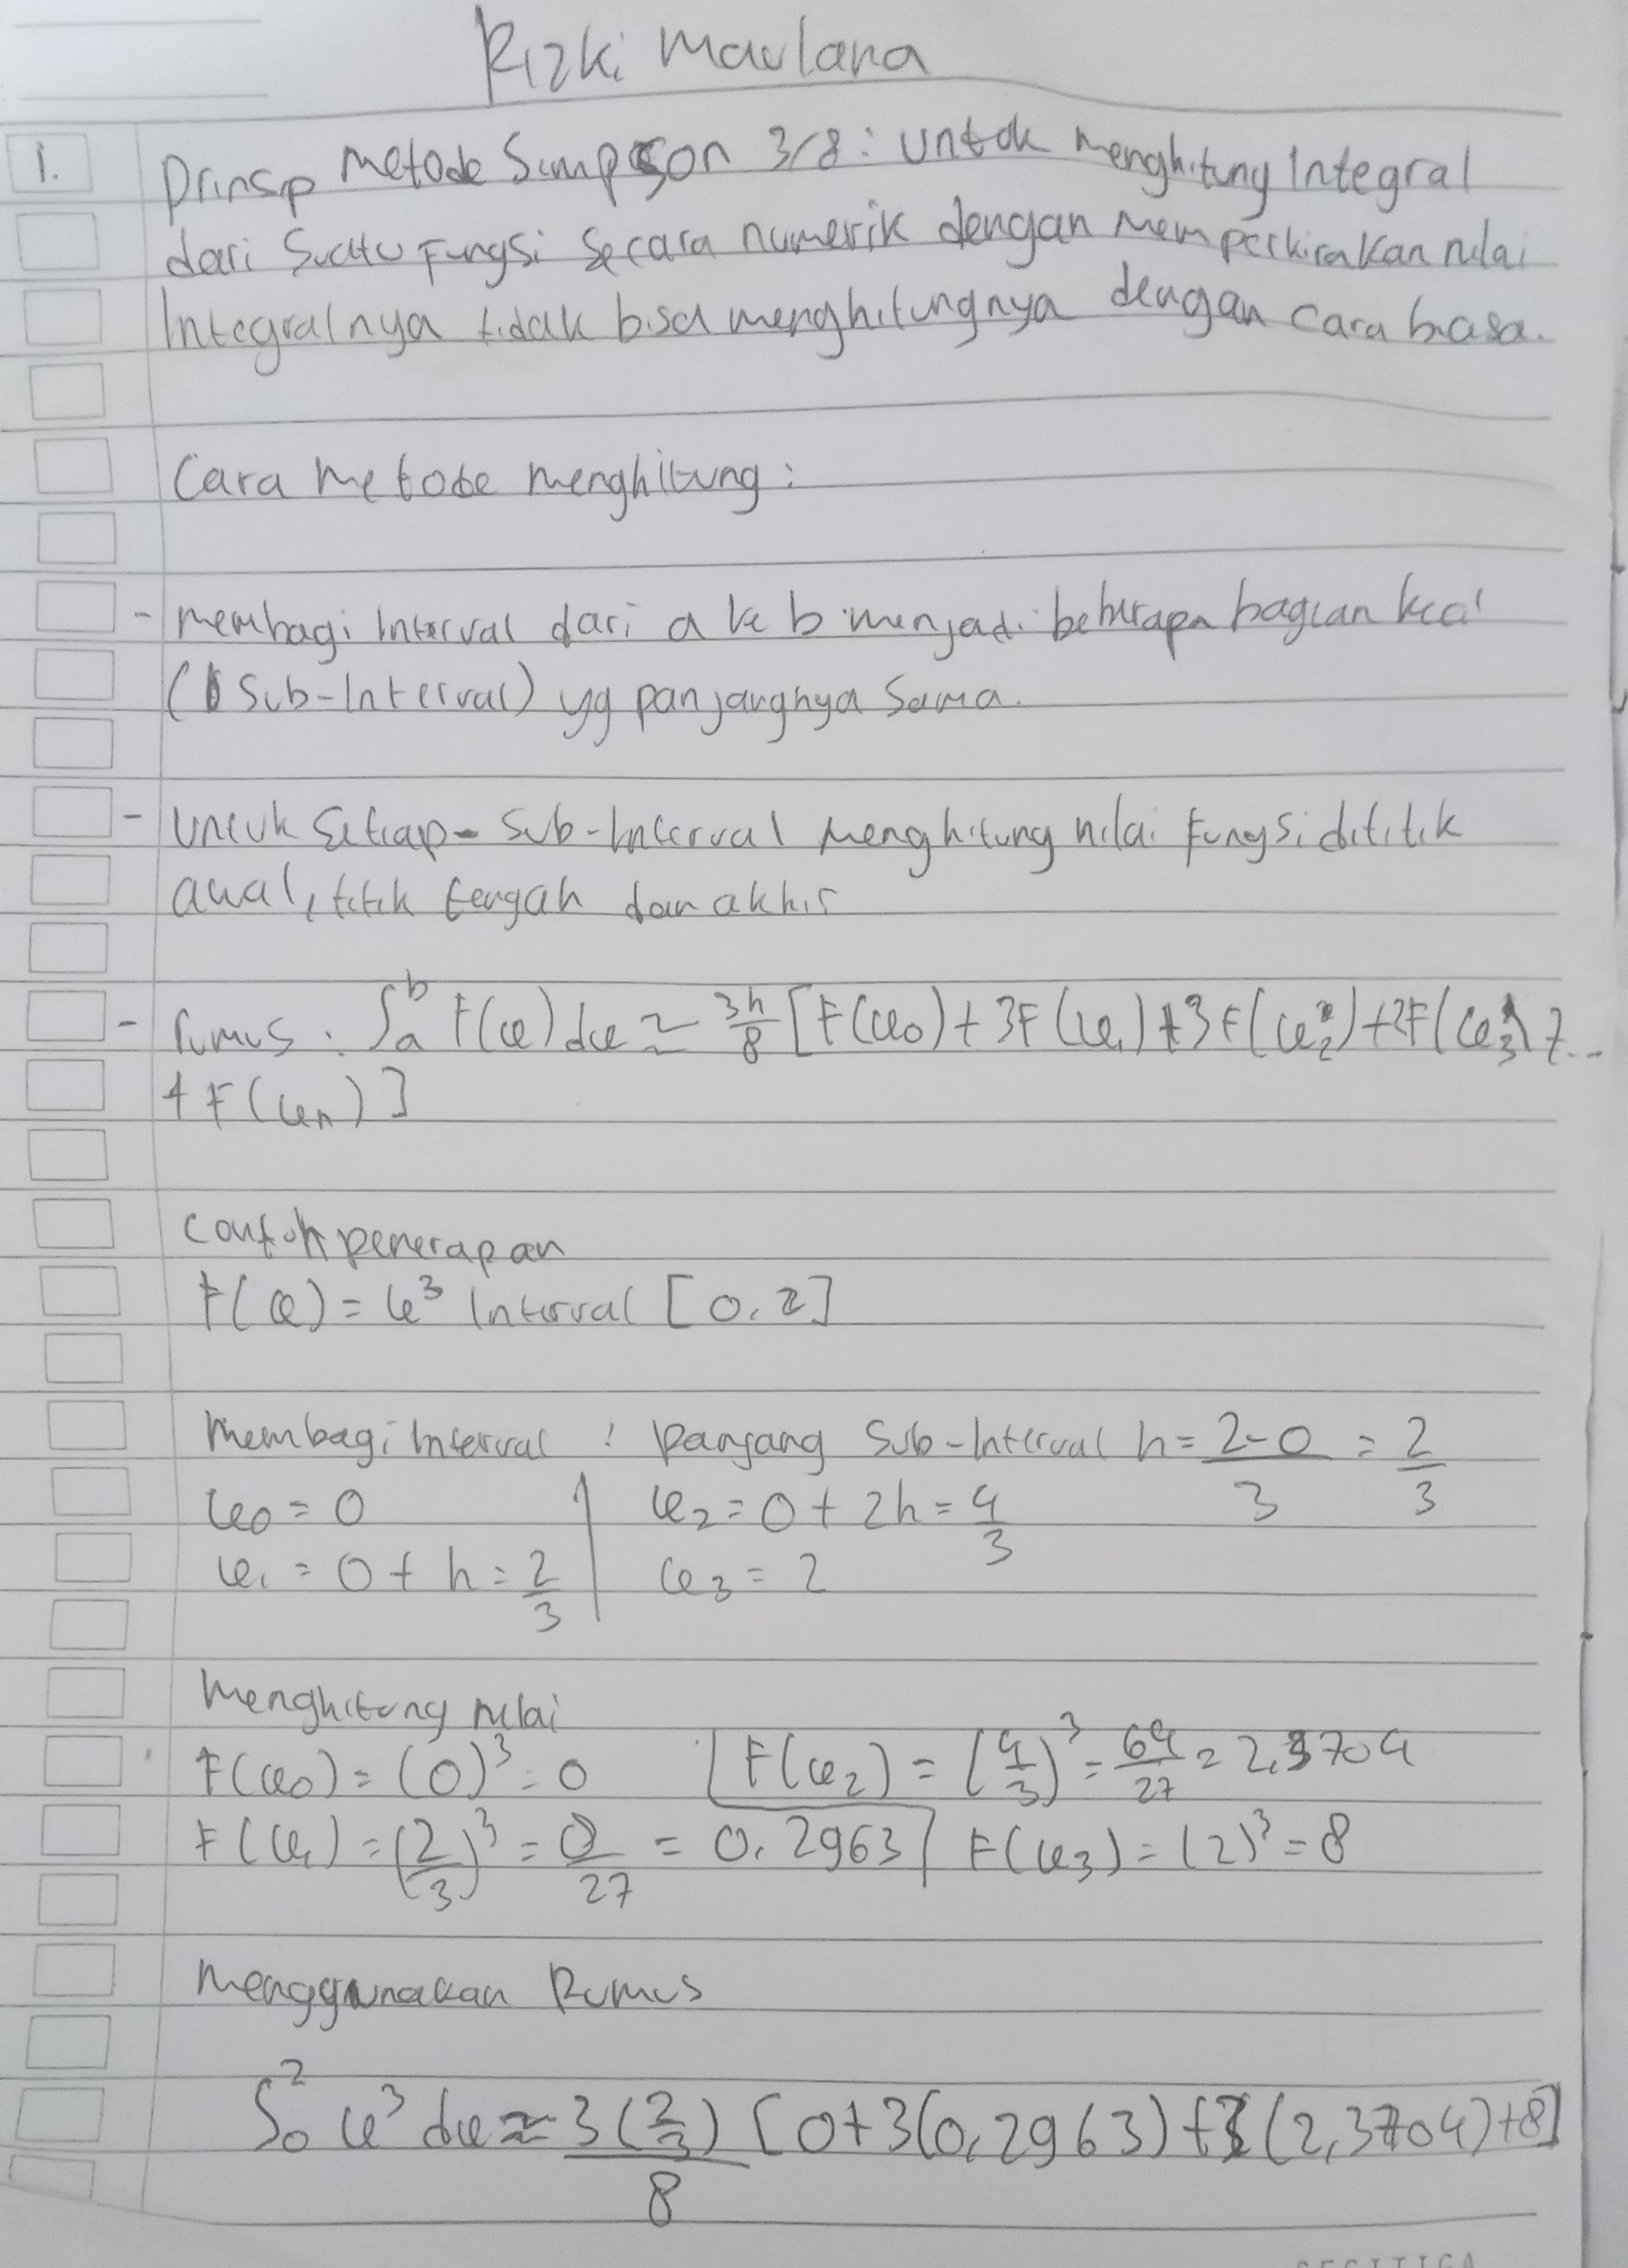 Rizki Maulana
1. Prinsip Metode Simpson 3/8 : untuk menghitung Integral
dari Suatu Fungsi Secara numerik dengan memperkirakan nilai
Integralnya tidak bisa menghitungnya dengan cara biasa.
Cara Metode menghitung :
- membagi Interval dari a ke b menjadi beberapa bagian kecil
(Sub-Interval) yg panjangnya Sama.
- Untuk Setiap - Sub-Interval menghitung nilai fungsi dititik
awal, titik tengah dan akhir
- Rumus : ∫ₐᵇ F(x) dx ≈ 3h/8 [F(x₀) + 3F(x₁) + 3F(x₂) + 2F(x₃) + ...
+ F(xₙ)]
Contoh penerapan
F(x) = x³ Interval [0,2]
Membagi Interval : Panjang Sub-Interval h = 2-0/3 = 2/3
x₀ = 0 | x₂ = 0 + 2h = 4/3
x₁ = 0 + h = 2/3 | x₃ = 2
Menghitung nilai
F(x₀) = (0)³ = 0 | F(x₂) = (4/3)³ = 64/27 = 2,3704
F(x₁) = (2/3)³ = 8/27 = 0,2963 | F(x₃) = (2)³ = 8
Menggunakan Rumus
∫₀² x³ dx ≈ 3(2/3)/8 [0+3(0,2963)+3(2,3704)+8]